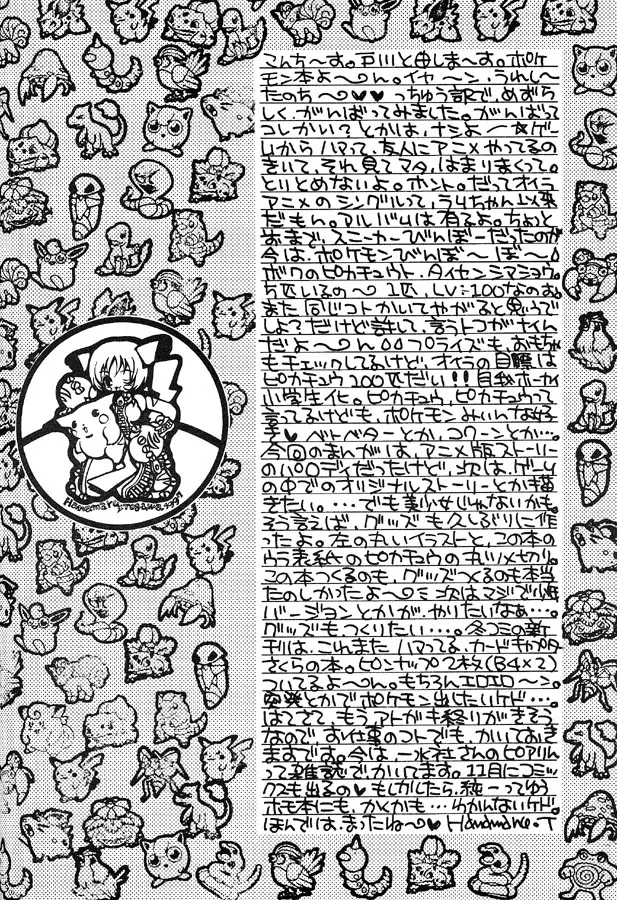 こんち〜す。戸川と申しま〜す。ポケ
モン本よ〜ん。イヤ〜ン、うれし〜
たのち〜♡♥ っちゅう訳で、めずら
しく、がんばってみました。がんばって
コレかい？とかは、ナシよ〜☆ゲー
ムからハマって、友人にアニメやってるの
きいて、それ見てマタ、はまりまくって。
とりとめないよ。ホント。だってオイラ
アニメのシングルって、うる
だもん。アルバムは有るよ。ちょっと
スニーカーびんぼーだったのが
今は、ポケモンびんぼ〜ぼ〜。
ボクのピカチュウト、タイセンシマショウ。
5匹いるの〜 1匹、LV:100なのお。
また同じコトかいてやがると思うで
しょ？だけど許して、言うトコがナイん
だよ〜ん プライズも、おもちゃ
もチェックしてるけど、オイラの目標は
ピカチュウ100匹だい!!
小学生化。ピカチュウ、ピカチュウって
言ってるけども、ポケモンみいんな好
き♡ベトベターとか、コクーンとか…。
今回のまんがは、アニメ版ストーリー
のパロディだったけど、次は、ゲーム
の中でのオリジナルストーリーとか描
きたい。…でも美少女じゃないかも。
そう言えば、グッズも久しぶりに作
ったよ。左の丸いイラストと、この本の
ウラ表紙のピカチュウの丸いメカリ。
この本つくるのも、グッズつくるのも本当
たのしかったよ〜ミ 次はマジで
バージョンとかが、やりたいなぁ…。
グッズもつくりたい…。冬コミの新
刊は、これまたハマってる、カードキャプタ
さくらの本。ピンナップ2枚(B4×2)
ついてるよ〜ん。もちろんエロエロ〜ン。
突発とかでポケモン出したいケド…。
はてさて、もうアトガキ終りがきそう
なので、お仕事のコトでも、かいておき
ますです。今は、一水社さんのピアリィ
って雑誌でかいてます。11月にコミッ
クスも出るの♥ もしかしたら、純一ってゆう
ホモ本にも、かくかも…わかんないケド。
ほんでは、まったね〜♥ Hanamaru.T
Hanamaru.Togawa.1997